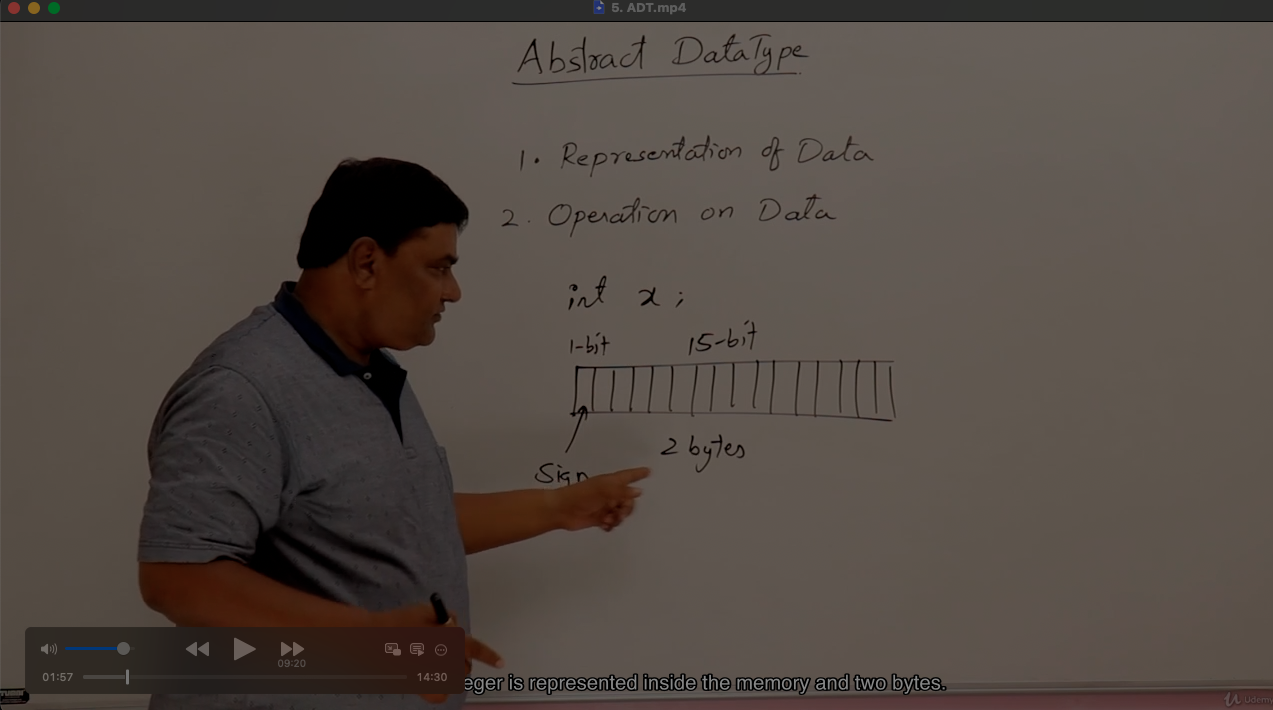 5. ADT.mp4
Abstract DataType
1. Representation of Data
2. Operation on Data
int x;
1-bit 15-bit
2 bytes
Sign
09:20
01:57 14:30
is represented inside the memory and two bytes.
Udemy